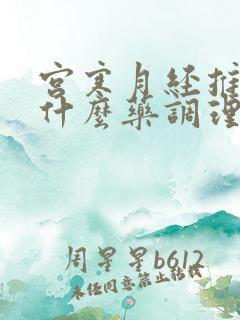 宫寒月经推
什麼藥調理
周星星b612
未经同意禁止转载